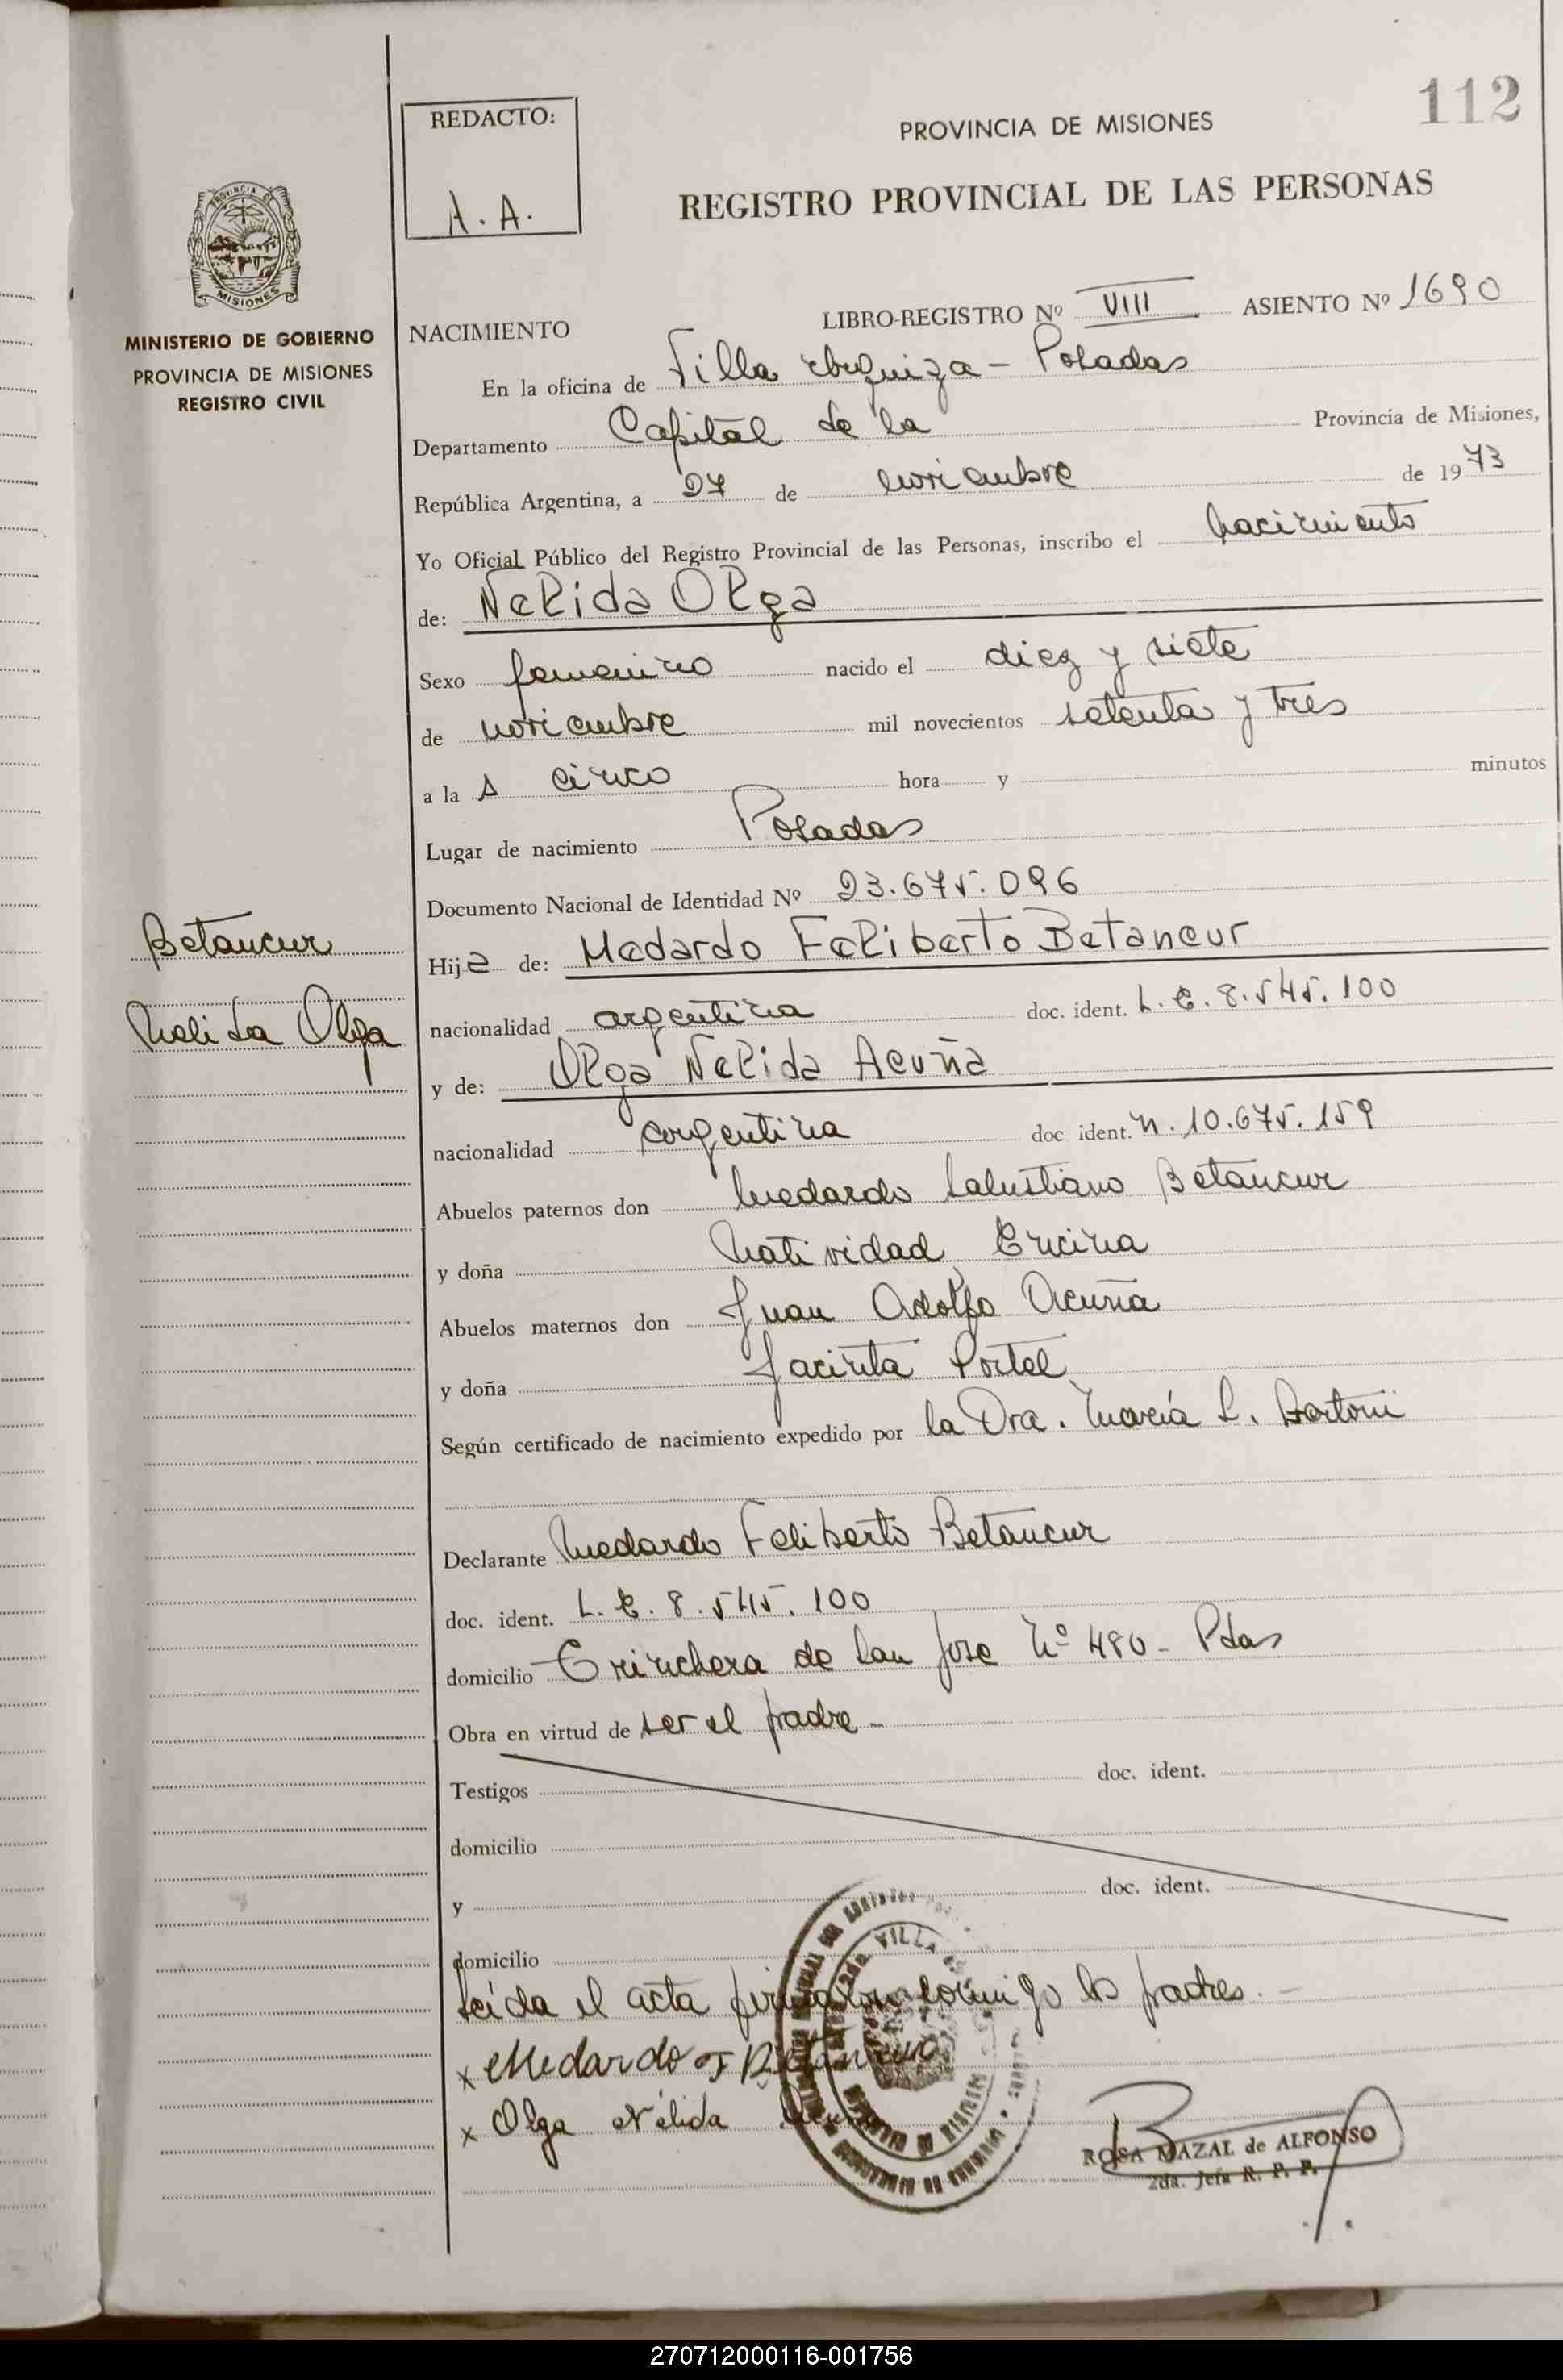 112
REDACTO:
A. A.
PROVINCIA DE MISIONES
REGISTRO PROVINCIAL DE LAS PERSONAS
PROVINCIA DE
MISIONES
MINISTERIO DE GOBIERNO
PROVINCIA DE MISIONES
REGISTRO CIVIL
NACIMIENTO
LIBRO-REGISTRO Nº VIII ASIENTO Nº 1690
En la oficina de Villa Urquiza - Posadas
Departamento Capital de la Provincia de Misiones,
República Argentina, a 27 de noviembre de 1973
Yo Oficial Público del Registro Provincial de las Personas, inscribo el nacimiento
de: Nelida Olga
Sexo femenino nacido el diez y siete
de noviembre mil novecientos setenta y tres
a la s cinco hora y minutos
Lugar de nacimiento Posadas
Documento Nacional de Identidad Nº 23.675.096
Betancur
Hija de: Medardo Feliberto Betancur
Nelida Olga
nacionalidad argentina doc. ident. L. E. 8.545.100
y de: Olga Nelida Acuña
nacionalidad argentina doc ident. N. 10.675.159
Abuelos paternos don Medardo Salustiano Betancur
y doña Natividad Encina
Abuelos maternos don Juan Adolfo Acuña
y doña Jacinta Portel
Según certificado de nacimiento expedido por la Dra. María L. Bertoni
Declarante Medardo Feliberto Betancur
doc. ident. L. E. 8.545.100
domicilio Trinchera de San Jose Nº 480 - Pdas
Obra en virtud de ser el padre -
Testigos doc. ident.
domicilio
y doc. ident.
domicilio
VILLA
leida el acta firman conmigo los padres. -
x Medardo F Betancur
x Olga Nélida Acuña
ROSA MAZAL de ALFONSO
2da. Jefa R. P. P.
270712000116-001756